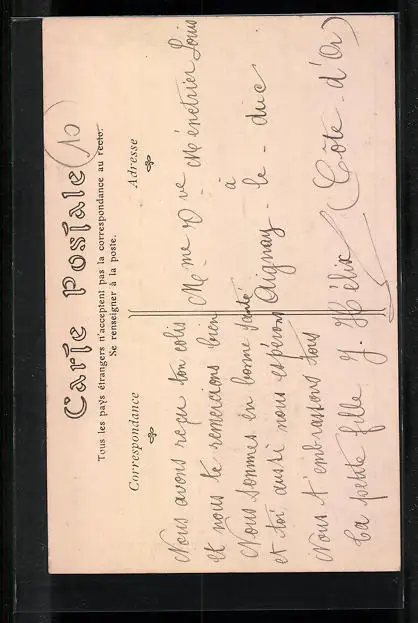 Carte Postale
(10)
Tous les pays étrangers n'acceptent pas la correspondance au recto.
Se renseigner à la poste.
Correspondance
Adresse
Nous avons reçu ton colis
et nous te remercions bien
Nous sommes en bonne santé
et toi aussi nous espérons
Nous t'embrassons tous
Ta petite fille J. Hélix
Mme Vve Ménétrier Louis
à
Aignay-le-duc
(Côte-d'Or)